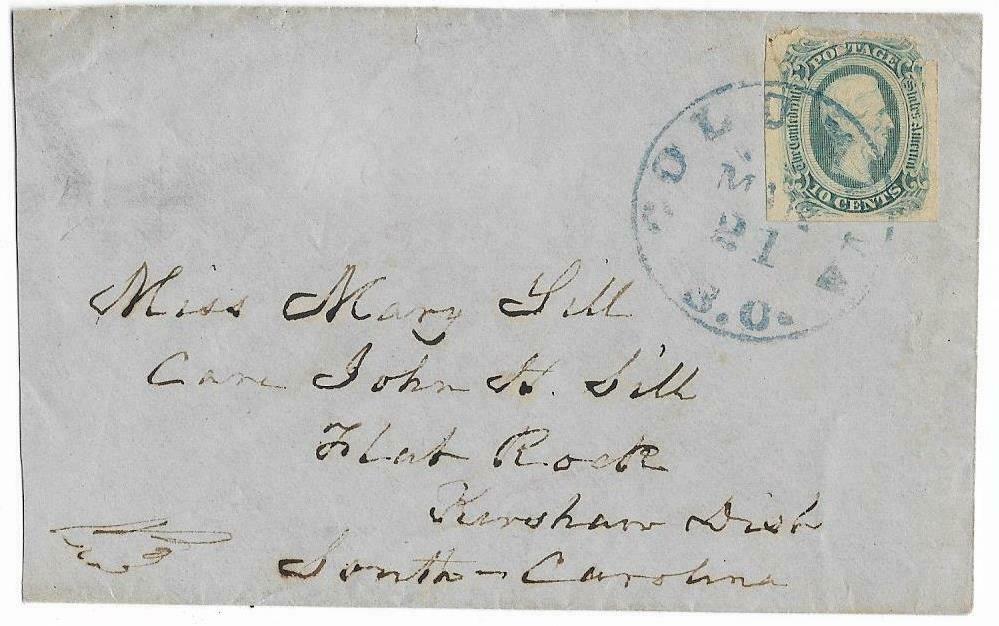 POSTAGE
The Confederate States of America
10 CENTS
COLUM
21
S.O.
Miss Mary Sill
Care John H. Sill
Flat Rock
Kershaw Dist
South-Carolina